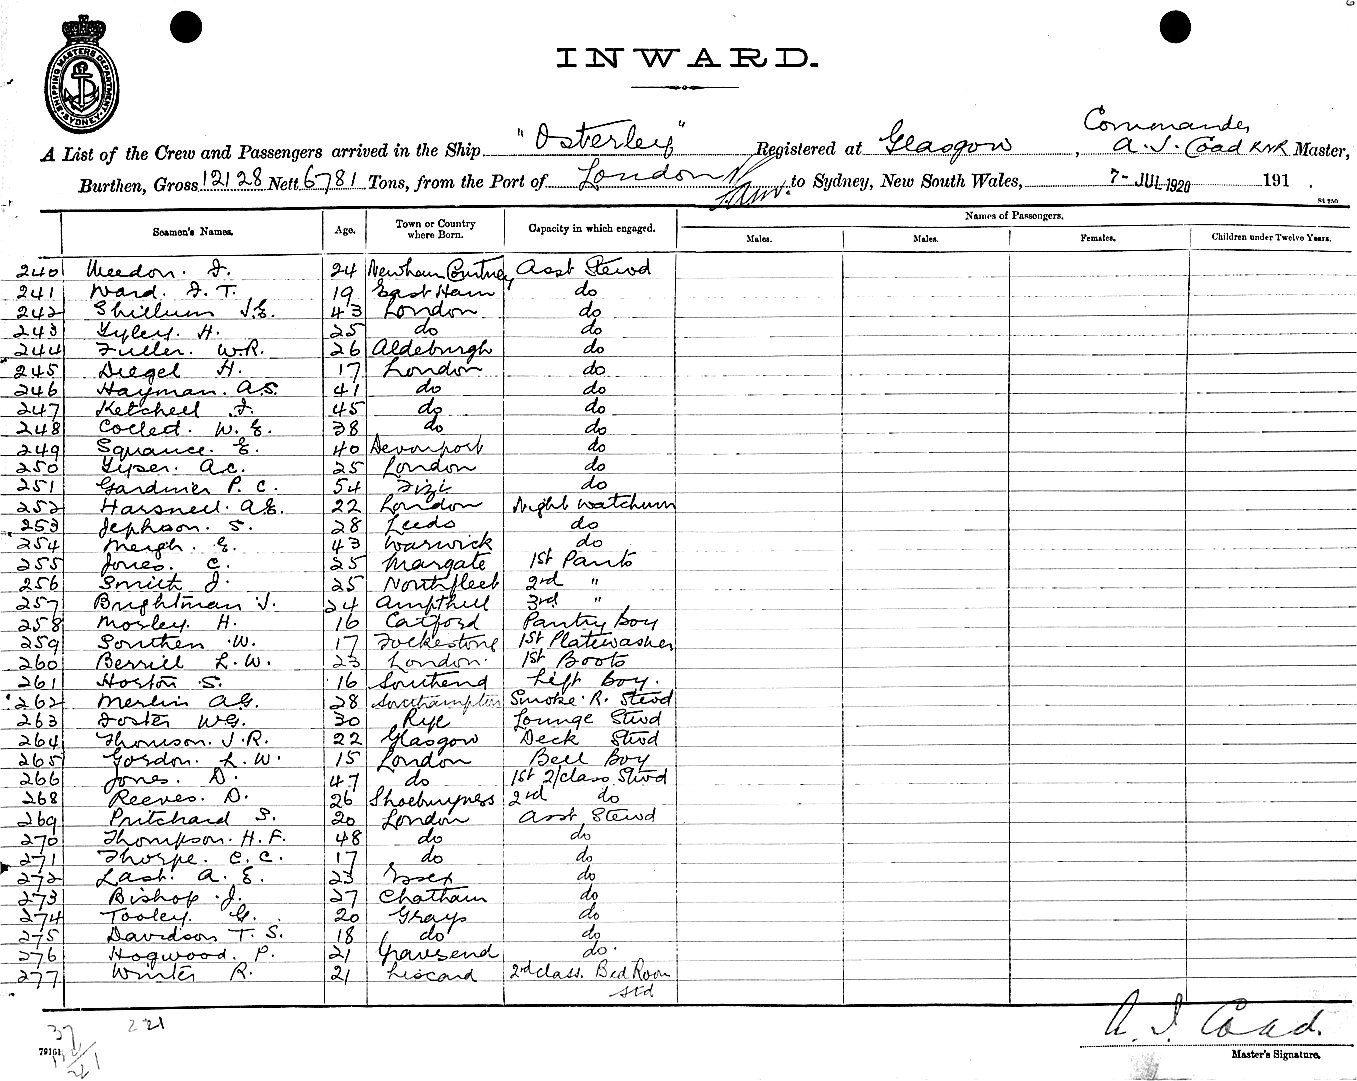 SHIPPING MASTERS DEPARTMENT SYDNEY
INWARD.
A List of the Crew and Passengers arrived in the Ship "Osterley" Registered at Glasgow, Commander A. J. Coad RNR Master,
Burthen, Gross 12128 Nett 6781 Tons, from the Port of London to Sydney, New South Wales, 7- JUL 1920 191 .
Seamen's Names. Age. Town or Country where Born. Capacity in which engaged. Names of Passengers.
Males. Males. Females. Children under Twelve Years.
240 Weedon. J. 24 Newham Asst Stewd
241 Ward. J. T. 19 East Ham do
242 Shillum J.E. 43 London do
243 Tyley. H. 25 do do
244 Fuller. W.R. 26 Aldeburgh do
245 Diegel H. 17 London do
246 Hayman. A.S. 41 do do
247 Ketchell J. 45 do do
248 W. E. 38 do do
249 Squance. E. 40 Devonport do
250 A.C. 25 London do
251 Gardiner P. C. 54 Fizi do
252 Harsnell. A.E. 22 London Night Watchmn
253 Jephson. S. 28 Leeds do
254 Meigh. E. 43 Warwick do
255 Jones. C. 25 Margate 1st Pants
256 Smith J. 25 Northfleet 2nd "
257 Brightman J. 24 Ampthill 3rd "
258 Mosley. H. 16 Catford Pantry Boy
259 Southen W. 17 Folkestone 1st Platewasher
260 Berrill L. W. 23 London. 1st Boots
261 Horton S. 16 Southend Lift Boy.
262 Merlin A.G. 28 Southampton Smoke. R. Stewd
263 Foster W.G. 30 Rye Lounge Stwd
264 Thomson. J. R. 22 Glasgow Deck Stwd
265 Gordon. L. W. 15 London Bell Boy
266 Jones. D. 47 do 1st 2/class Stwd
268 Reeves. D. 26 Shoeburyness 2nd do
269 Pritchard S. 20 London Asst Stewd
270 Thompson. H. F. 48 do do
271 Thorpe. C. C. 17 do do
272 Last. A. E. 23 Essex do
273 Bishop J. 27 Chatham do
274 Tooley. G. 20 Grays do
275 Davidson T. S. 18 do do
276 Hogwood. P. 21 Gravsend do.
277 Winter R. 21 Liscard 2nd class. Bed Room Std
37 221
79161
A. J. Coad.
Master's Signature.